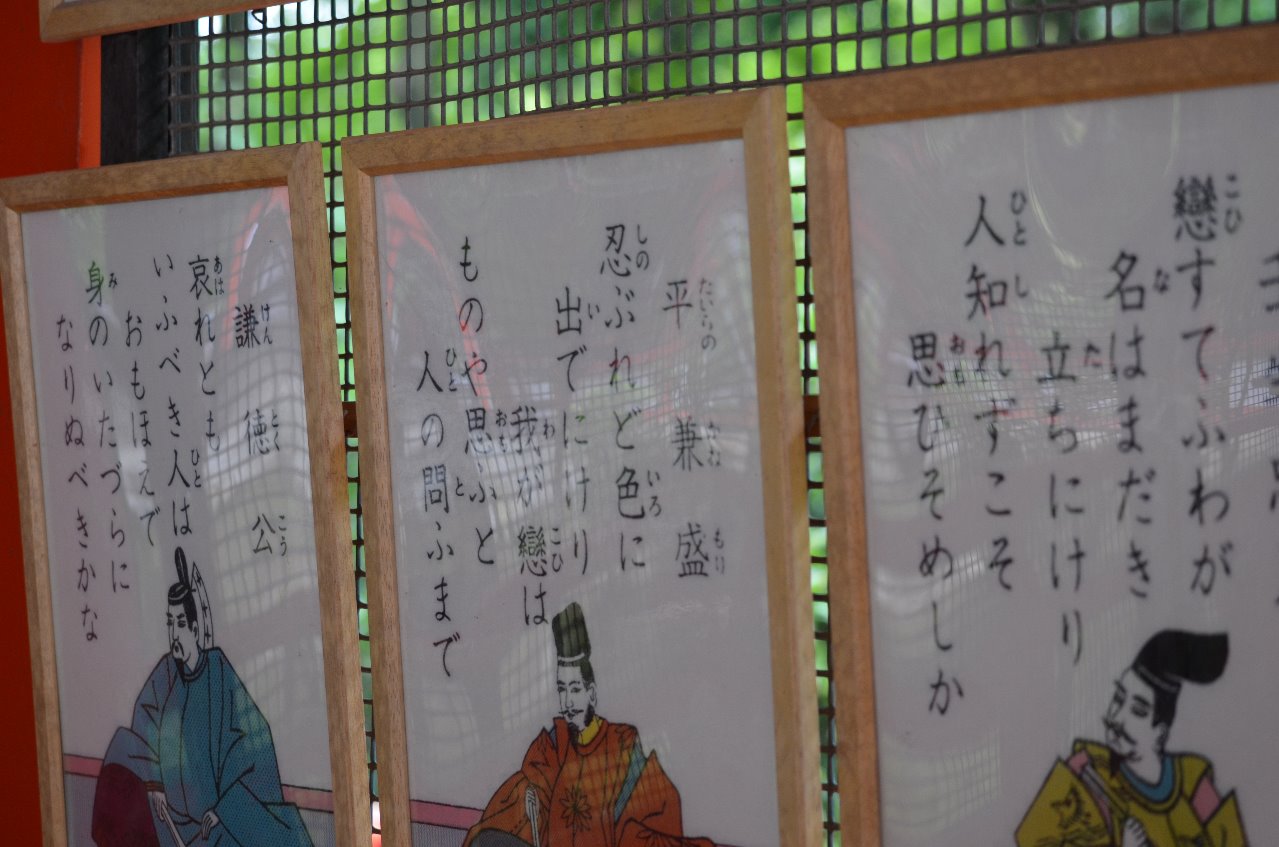 戀すてふわが
名はまだき
立ちにけり
人知れずこそ
思ひそめしか
平兼盛
忍ぶれど色に
出でにけり
我が戀は
ものや思ふと
人の問ふまで
謙徳公
哀れとも
いふべき人は
おもほえで
身のいたづらに
なりぬべきかな